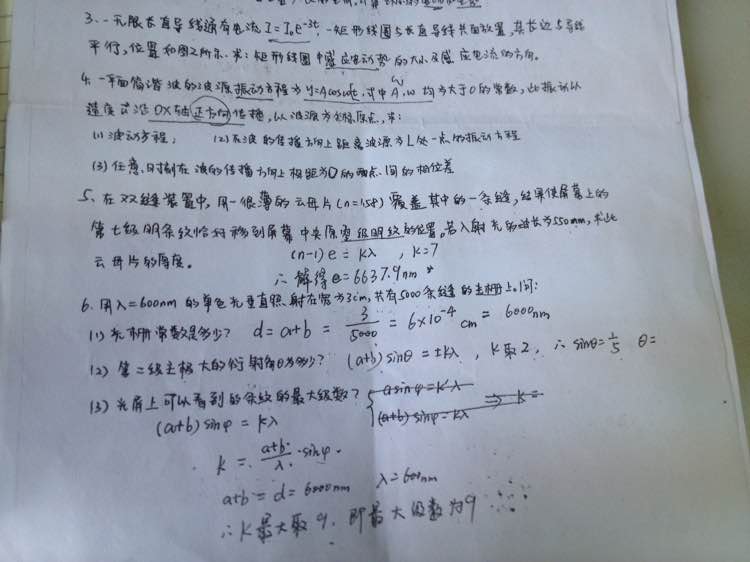 3. 一无限长直导线通有电流 I = I₀e⁻³ᵗ. 一矩形线圈与长直导线共面放置, 其长边与导线
平行, 位置如图2所示. 求: 矩形线圈中感应电动势的大小及感应电流的方向.
4. 一平面简谐波的波源振动方程为 y=Acosωt, 式中 A, ω 均为大于0的常数, 此振动以
速度 沿OX轴正方向传播, 以波源为坐标原点, 求:
(1) 波动方程; (2) 在波的传播方向上距离波源为L处一点的振动方程
(3) 任意时刻在波的传播方向上相距为D的两点间的相位差
5. 在双缝装置中, 用一很薄的云母片 (n=1.58) 覆盖其中的一条缝, 结果使屏幕上的
第七级明条纹恰好移到屏幕中央原零级明纹的位置. 若入射光的波长为550nm, 求此
云母片的厚度.
(n-1)e = kλ , k=7
∴ 解得 e = 6637.9nm
6. 用λ=600nm 的单色光垂直照射在宽为3cm, 共有5000条缝的光栅上. 问:
(1) 光栅常数是多少? d = a+b = 3/5000 = 6×10⁻⁴ cm = 6000nm
(2) 第二级主极大的衍射角θ为多少? (a+b) sinθ = ±kλ , k取2, ∴ sinθ = 1/5 θ=
(3) 光屏上可以看到的条纹的最大级数? { a sinφ = k'λ
(a+b) sinφ = kλ ⇒ k =
(a+b) sinφ = kλ
k = (a+b)/λ · sinφ.
a+b = d = 6000nm λ=600nm
∴ k最大取9, 即最大级数为9